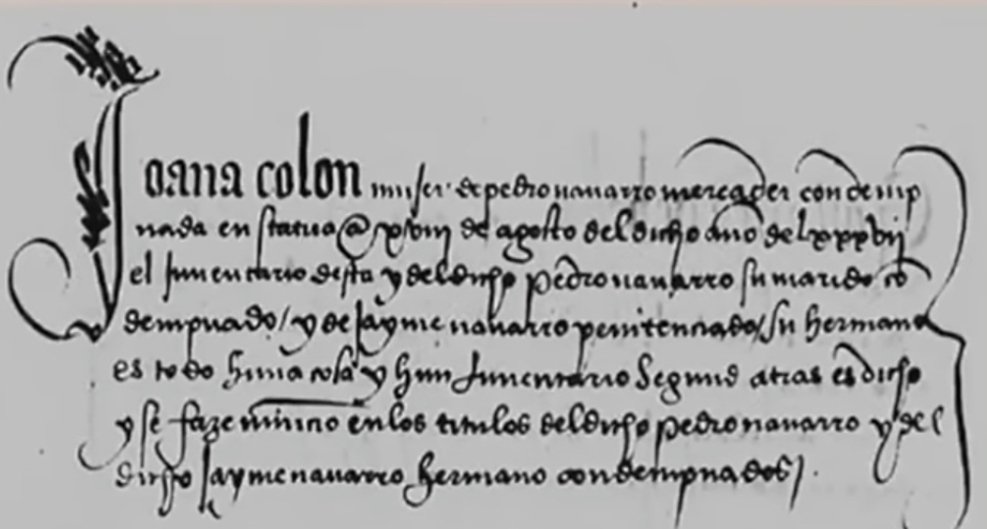 Joana colon muler de pedro nauarro mercader condemp
nada en statua a xviij de agosto del dicho año de lxxxvij
el Inuentario desta y del dicho pedro nauarro su marido cō
dempnado / y de Jayme nauarro penitenciado / su hermano
es todo huna cosa y hun Inuentario segund atras es dicho
y se faze minino en los titulos del dicho pedro nauarro y del
dicho Jayme nauarro hermano condempnados /.